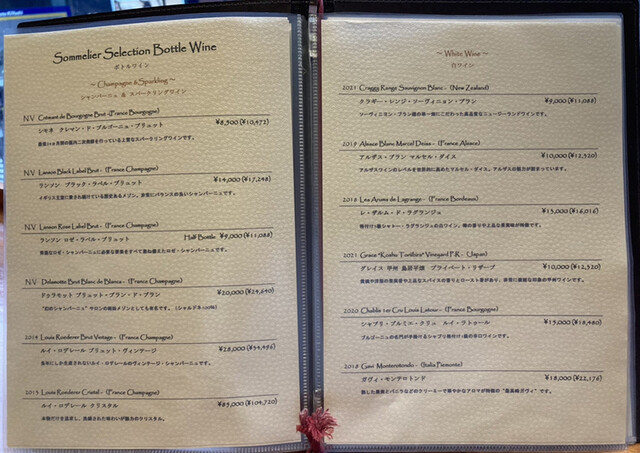 Sommelier Selection Bottle Wine
ボトルワイン
～ Champagne & Sparkling ～
シャンパーニュ & スパークリングワイン
N.V Crémant de Bourgogne Brut - (France Bourgogne)
シモネ クレマン・ド・ブルゴーニュ・ブリュット ¥8,500 (¥10,472)
N.V Lanson Black Label Brut - (France Champagne)
ランソン ブラック・ラベル・ブリュット ¥14,000 (¥17,248)
イギリス王室に愛され続けている歴史あるメゾン。非常にバランスの良いシャンパーニュです。
N.V Lanson Rose Label Brut - (France Champagne)
ランソン ロゼ・ラベル・ブリュット Half Bottle ¥9,000 (¥11,088)
N.V Delamotte Brut Blanc de Blancs - (France Champagne)
ドゥラモット ブリュット・ブラン・ド・ブラン ¥20,000 (¥24,640)
"幻のシャンパーニュ" サロンの姉妹メゾンとしても有名です。(シャルドネ100%)
2014 Louis Roederer Brut Vintage - (France Champagne)
ルイ・ロデレール ブリュット・ヴィンテージ ¥28,000 (¥34,496)
2015 Louis Roederer Cristal - (France Champagne)
ルイ・ロデレール クリスタル ¥85,000 (¥104,720)
～ White Wine ～
白ワイン
2021 Craggy Range Sauvignon Blanc - (New Zealand)
クラギー・レンジ・ソーヴィニヨン・ブラン ¥9,000 (¥11,088)
ソーヴィニヨン・ブラン種の単一畑にこだわった高品質なニュージーランドワインです。
2019 Alsace Blanc Marcel Deiss - (France Alsace)
アルザス・ブラン マルセル・ダイス ¥10,000 (¥12,320)
アルザスワインのレベルを世界的に高めたマルセル・ダイス。アルザスの魅力が詰まっています。
2018 Les Arums de Lagrange - (France Bordeaux)
レ・ザルム・ド・ラグランジュ ¥13,000 (¥16,016)
2021 Grace "Koshu Toriibira" Vineyard P.R - (Japan)
グレイス 甲州 鳥居平畑 プライベート・リザーブ ¥10,000 (¥12,320)
2020 Chablis 1er Cru Louis Latour - (France Bourgogne)
シャブリ・プルミエ・クリュ ルイ・ラトゥール ¥15,000 (¥18,480)
ブルゴーニュの名門が手掛けるシャブリ格付け1級の辛口ワインです。
2018 Gavi Monterotondo - (Italia Piemonte)
ガヴィ・モンテロトンド ¥18,000 (¥22,176)